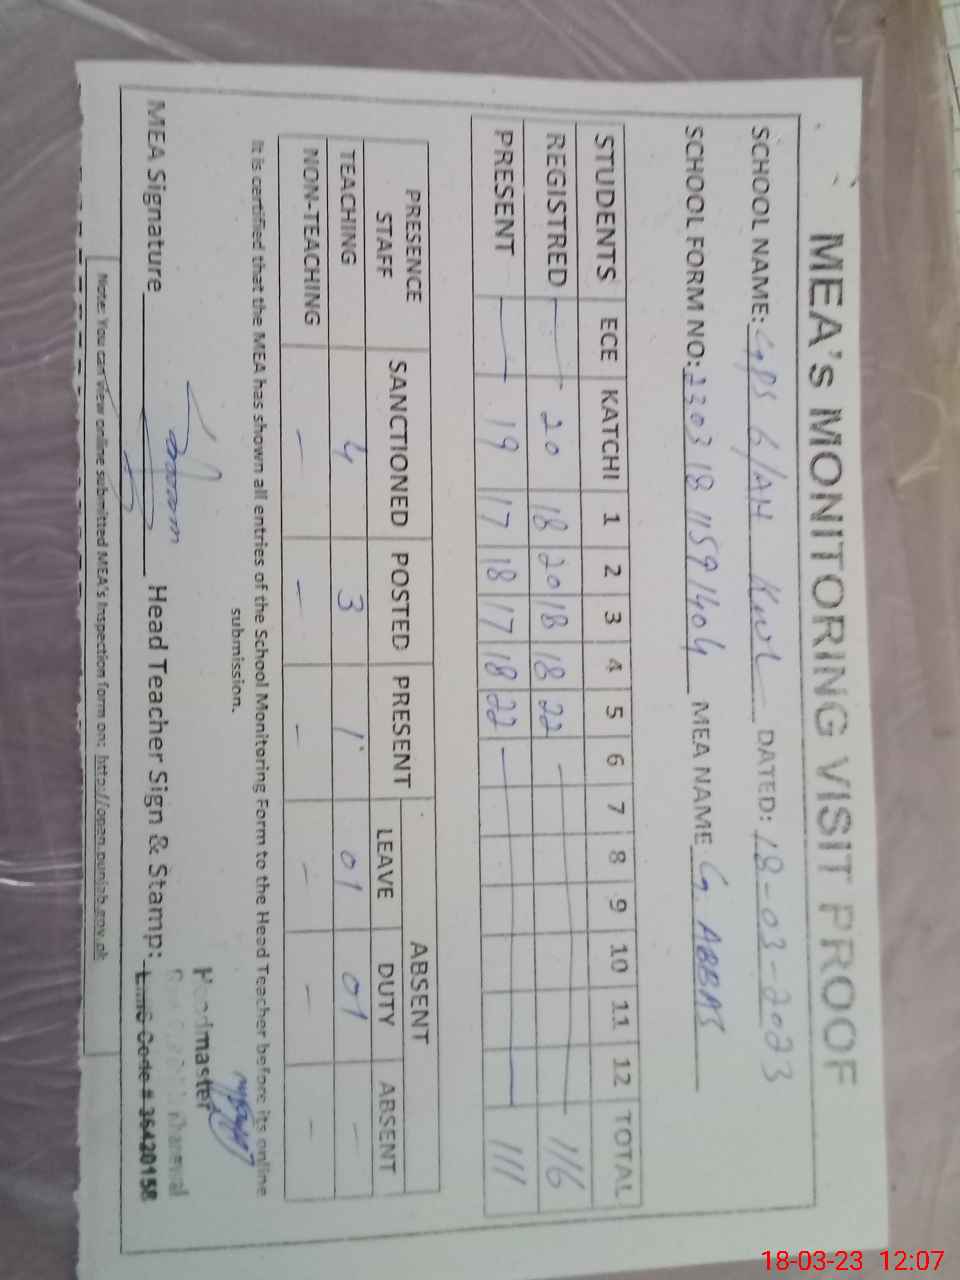 MEA's MONITORING VISIT PROOF
SCHOOL NAME: GPS 6/AH Kwl DATED: 18-03-2023
SCHOOL FORM NO: 2303 18 11591404 MEA NAME G. ABBAS
STUDENTS ECE KATCHI 1 2 3 4 5 6 7 8 9 10 11 12 TOTAL
REGISTRED — 20 18 20 18 18 22 — 116
PRESENT — 19 17 18 17 18 22 — 111
PRESENCE STAFF SANCTIONED POSTED PRESENT ABSENT
LEAVE DUTY ABSENT
TEACHING 4 3 1 01 01 —
NON-TEACHING — — — — — —
It is certified that the MEA has shown all entries of the School Monitoring Form to the Head Teacher before its online
submission.
Headmaster
MEA Signature Head Teacher Sign & Stamp: Code # 36420158
Note: You can view online submitted MEA's Inspection form on: http://open.punjab.gov.pk
18-03-23 12:07